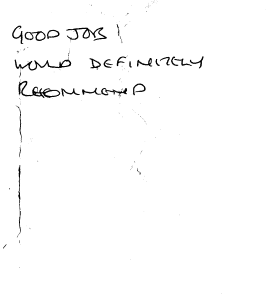 GOOD JOB!
WOULD DEFINITELY
RECOMMEND